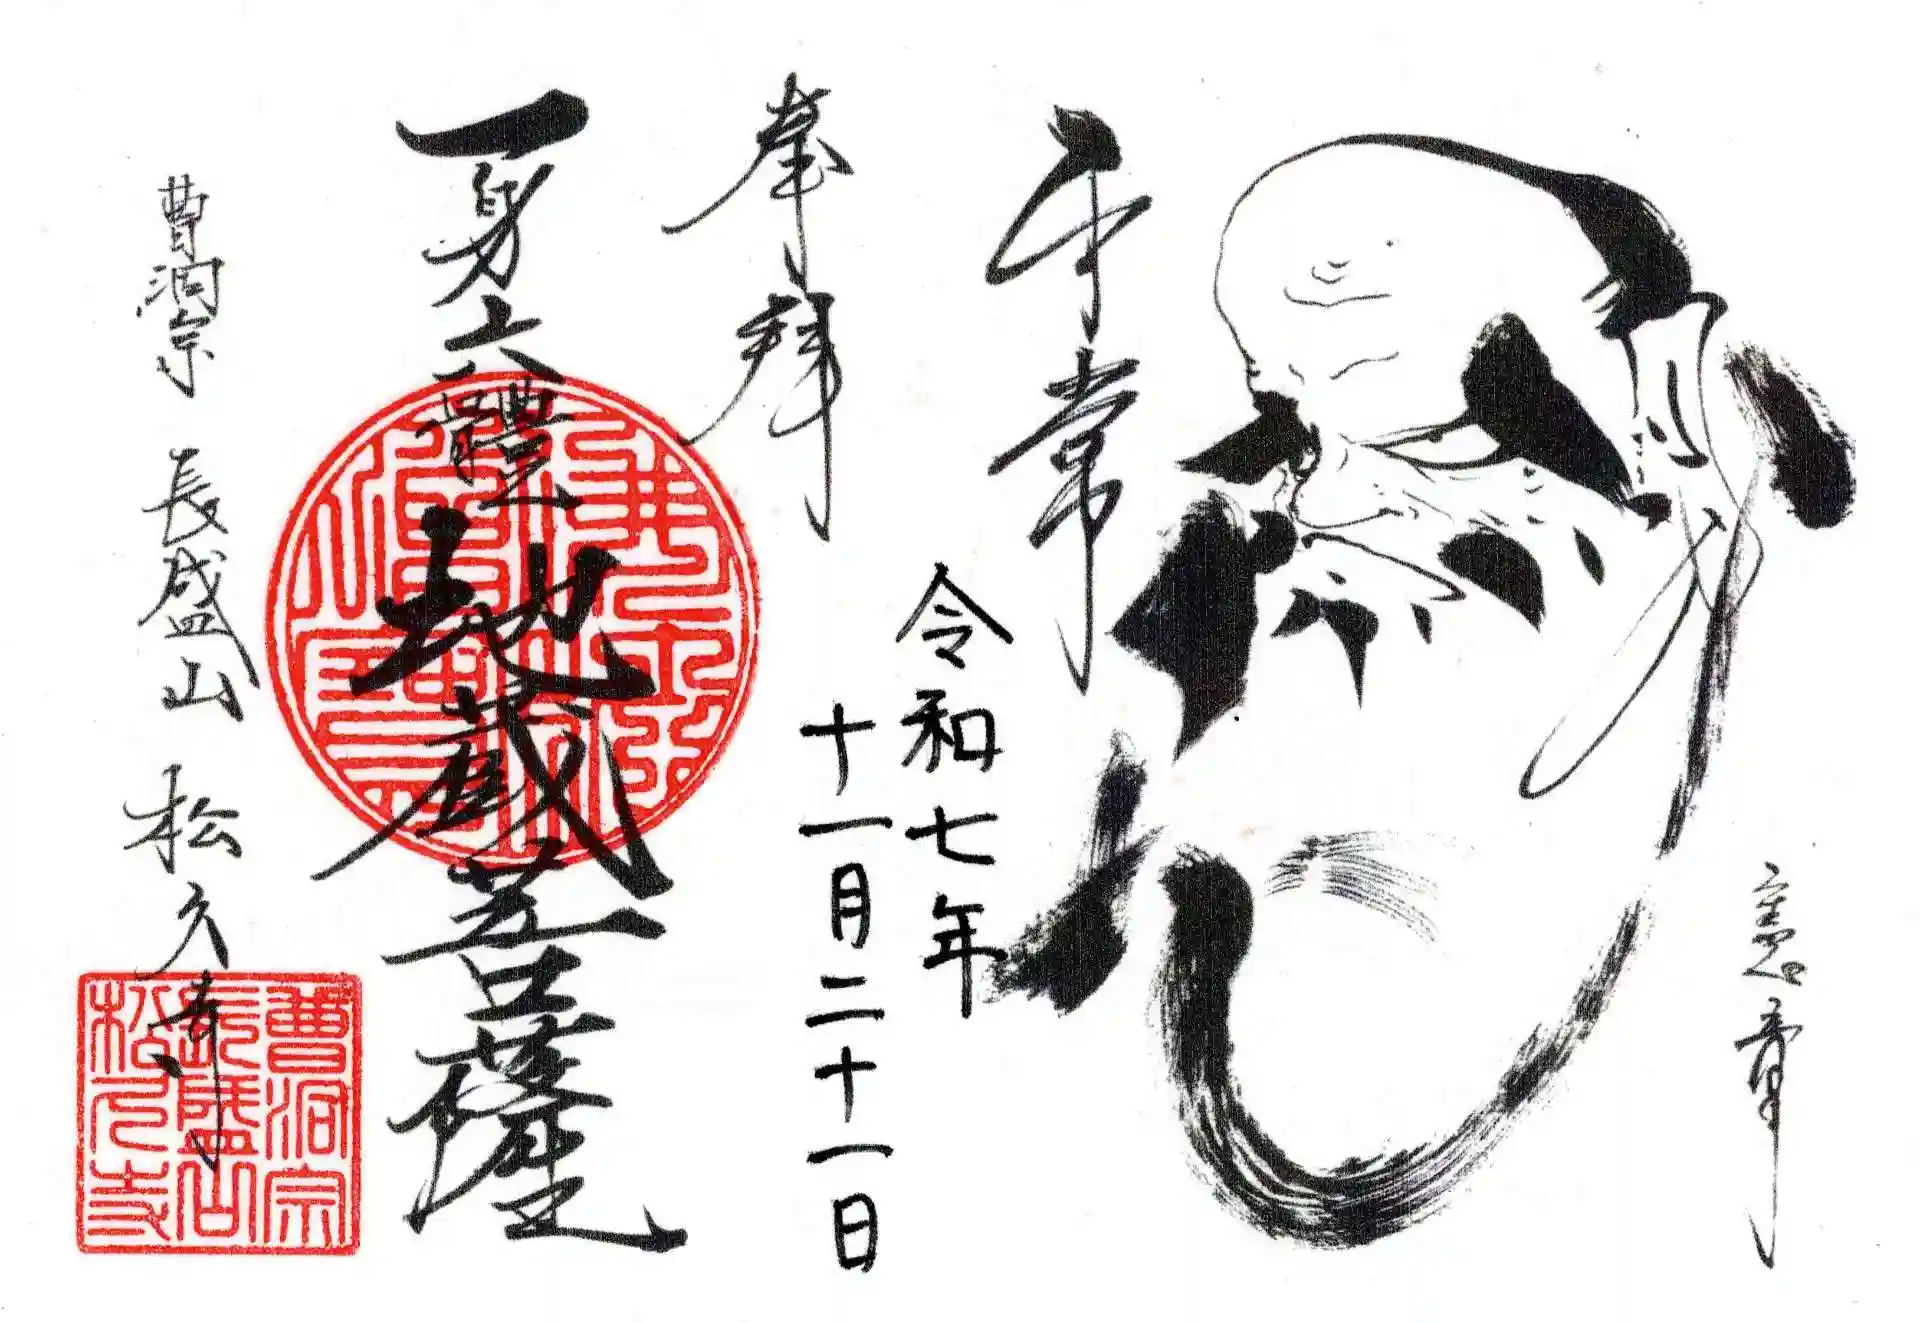 憲章
平常心
奉拝
令和七年
十一月二十一日
一身六體地蔵菩薩
曹洞宗 長盛山 松久寺
曹洞宗
長盛山
松久寺